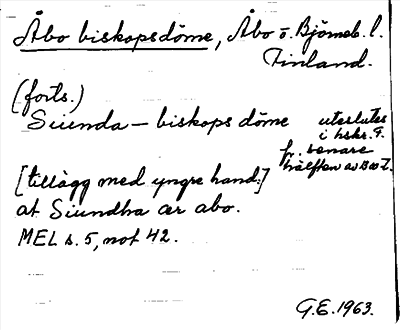 Åbo biskopsdöme, Åbo o. Björneb. l.
Finland.
(forts.)
Siunda – biskops döme uteslutes
i hskr. F.
fr. senare
hälften av 1300 t.
[tillägg med yngre hand:]
at Siundha ær abo.
MEL s. 5, not 42.
G.E. 1963.